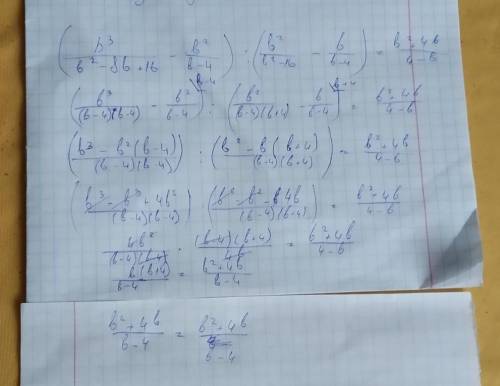 (b³/(b²-8b+16) - b²/(b-4)) : (b²/(b²-16) - b/(b-4)) = (b²+4b)/(4-b)
(b³/((b-4)(b-4)) - b²/(b-4)^(\b-4)) : (b²/((b-4)(b+4)) - b/(b-4)^(\b+4)) = (b²+4b)/(4-b)
((b³ - b²(b-4))/((b-4)(b-4))) : ((b² - b(b+4))/((b-4)(b+4))) = (b²+4b)/(4-b)
((b³ - b³ + 4b²)/((b-4)(b-4))) : ((b² - b² - 4b)/((b-4)(b+4))) = (b²+4b)/(4-b)
4b²/((b-4)(b-4)) · ((b-4)(b+4))/4b = (b²+4b)/(4-b)
b(b+4)/(b-4) = (b²+4b)/(b-4)
(b²+4b)/(b-4) = (b²+4b)/(b-4)